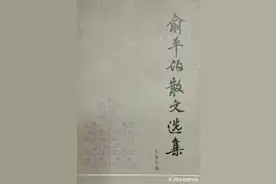 俞平伯散文选集